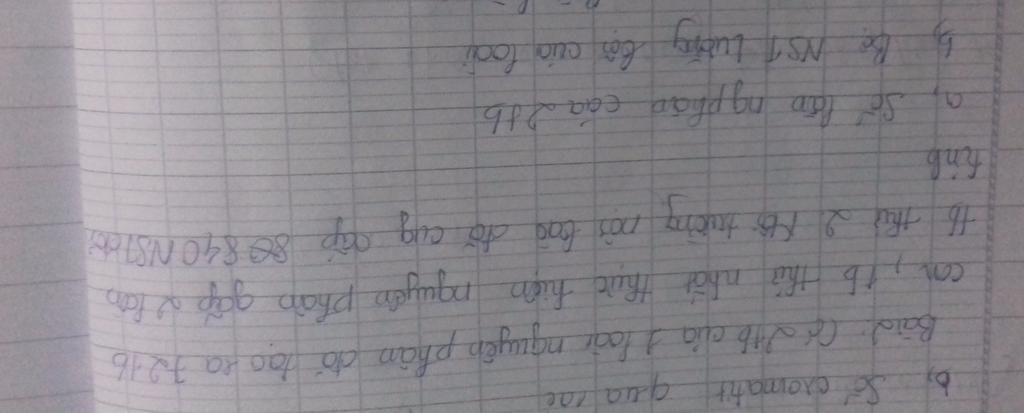 b, Số cromatit qua các
Bài 2: Có 2 tb của 1 loài nguyên phân đã tạo ra 72 tb
con, tb thứ nhất thực hiện nguyên phân gấp 2 lần
tb thứ 2 Mô trường nội bào đã cug cấp 840 NSTđơn.
tính
a, Số lần ng phân của 2 tb
b, Bộ NST lưỡng bội của loài